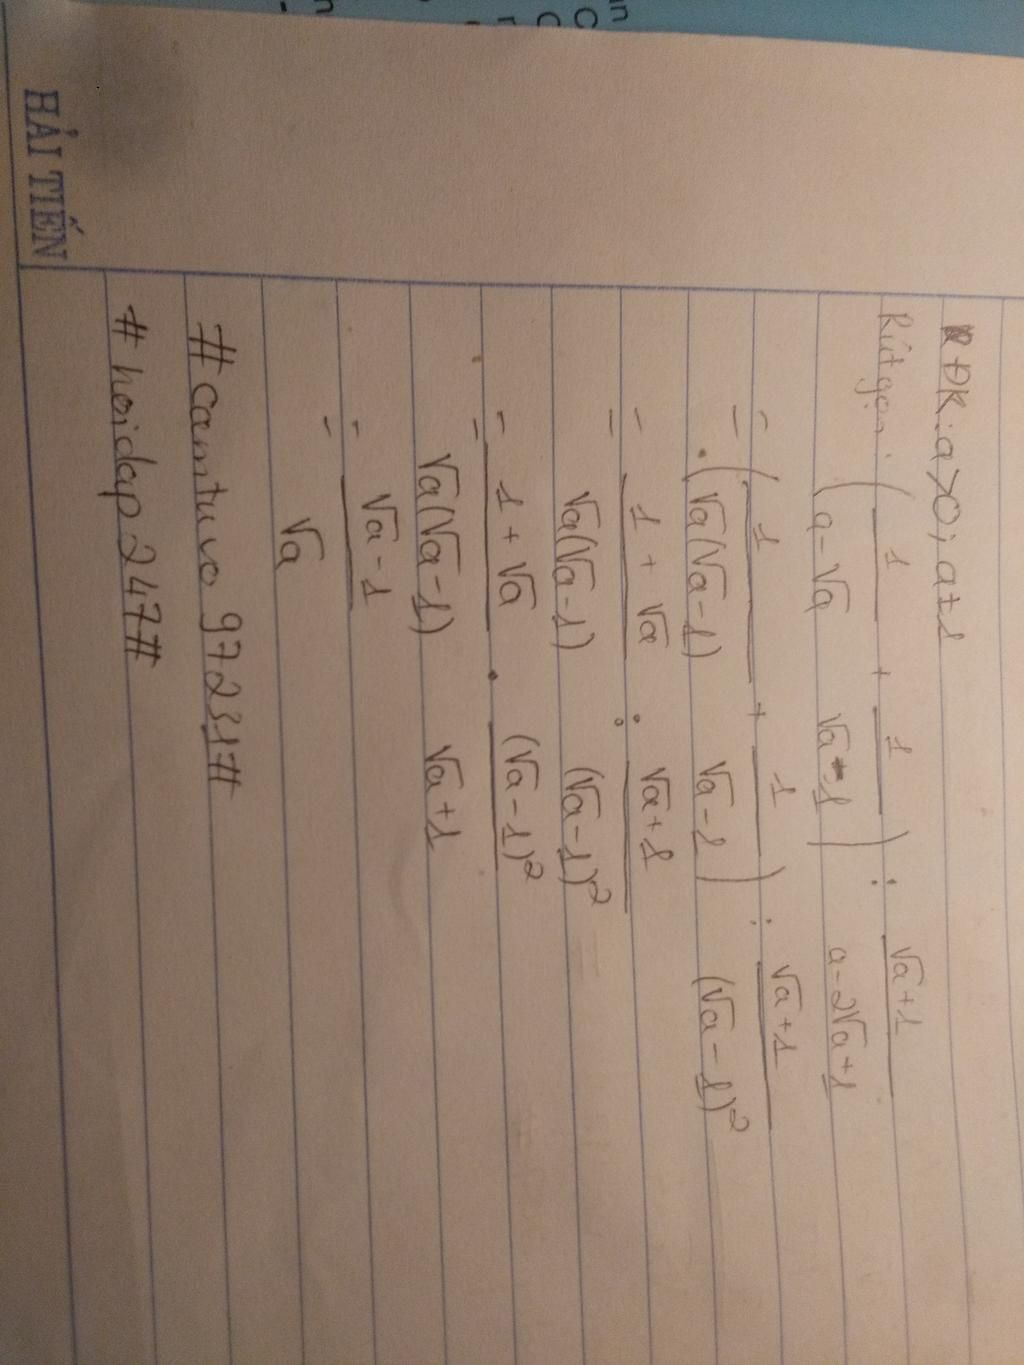 ĐK: a>0; a≠1
Rút gọn: (1/(a-√a) + 1/(√a-1)) : (√a+1)/(a-2√a+1)
= (1/(√a(√a-1)) + 1/(√a-1)) : (√a+1)/(√a-1)²
= (1+√a)/(√a(√a-1)) : (√a+1)/(√a-1)²
= (1+√a)/(√a(√a-1)) . (√a-1)²/(√a+1)
= (√a-1)/√a
#camtuvo97231#
#hoidap247#
HẢI TIẾN